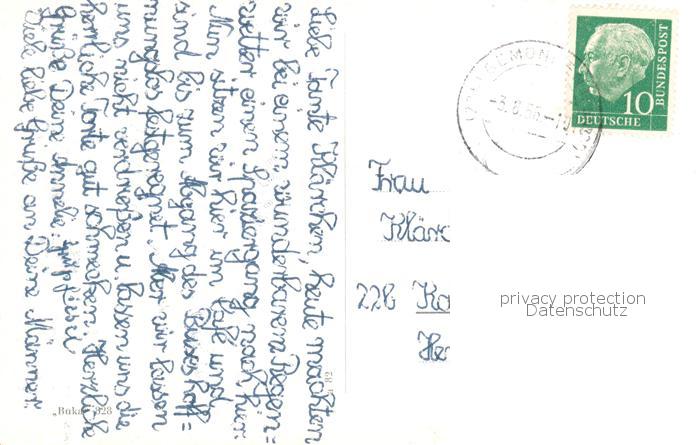 Liebe Tante Klärchen, heute machten
wir bei einem wunderbaren Regen=
wetter einen Spaziergang nach hier.
Nun sitzen wir hier im Café und
sind bis zum Abgang des Busses hoff=
nungslos festgeregnet. Aber wir lassen
uns nicht verdrießen u. lassen uns die
herrliche Torte gut schmecken. Herzliche
Grüße Deine Annele
Viele liebe Grüße an Deine Männer.
"Buka" 928
a 82
DEUTSCHE
BUNDESPOST
10
-3.8.56.-
Frau
Klärc
22b Ko
He
privacy protection
Datenschutz